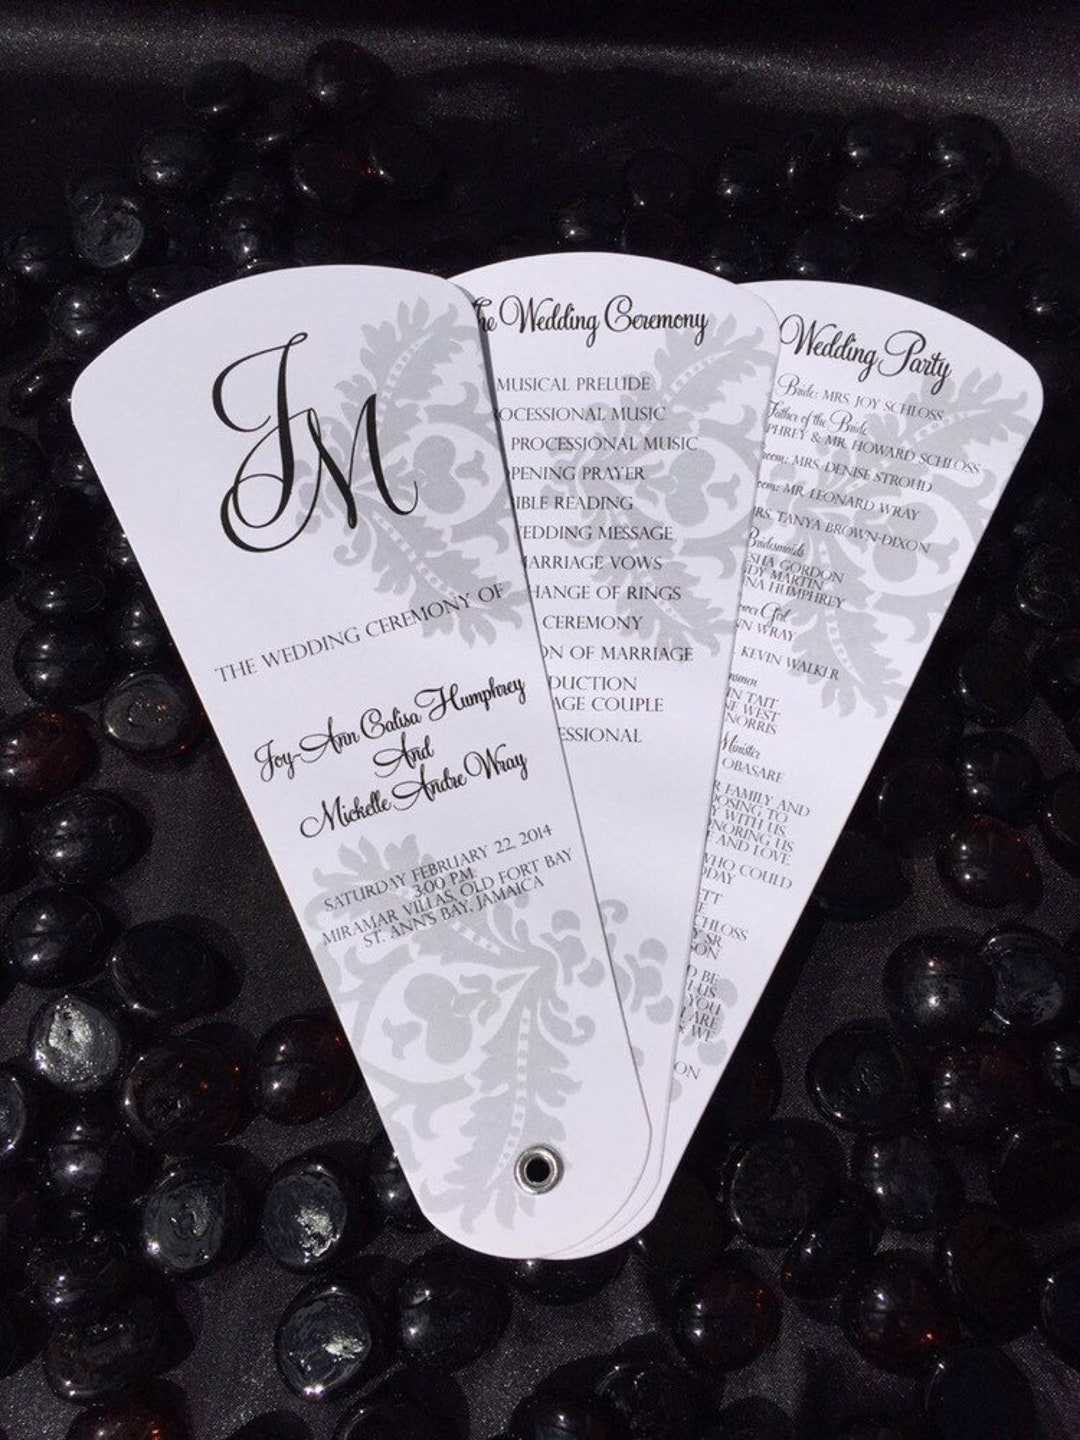 JM
THE WEDDING CEREMONY OF
Joy-Ann Calisa Humphrey
And
Mickelle Andre Wray
SATURDAY FEBRUARY 22, 2014
3:00 PM
MIRAMAR VILLAS, OLD FORT BAY
ST. ANN'S BAY, JAMAICA
he Wedding Ceremony
MUSICAL PRELUDE
OCESSIONAL MUSIC
PROCESSIONAL MUSIC
PENING PRAYER
IBLE READING
EDDING MESSAGE
ARRIAGE VOWS
HANGE OF RINGS
CEREMONY
ON OF MARRIAGE
DUCTION
AGE COUPLE
ESSIONAL
Wedding Party
Bride: MRS JOY SCHLOSS
Father of the Bride
PHREY & MR. HOWARD SCHLOSS
oom: MRS. DENISE STROUD
oom: MR. LEONARD WRAY
RS. TANYA BROWN-DIXON
Bridesmaids
SHA GORDON
DY MARTIN
NA HUMPHREY
ower Girl
NN WRAY
KEVIN WALKER
msmen
IN TAIT
NE WEST
NORRIS
Minister
OBASARE
R FAMILY, AND
OOSING TO
Y WITH US,
NORING US
AND LOVE.
WHO COULD
ODAY
TT
CHLOSS
Y SR.
SON
D BE
US
YOU
ARE
WE
ON